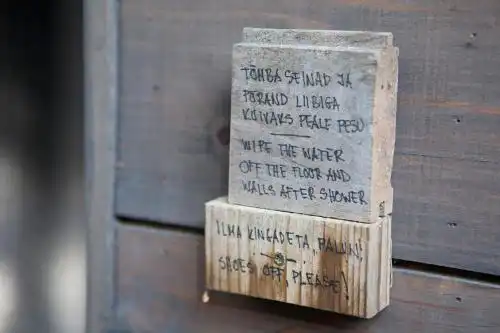 TÕMBA SEINAD JA
PÕRAND LIIBIGA
KUIVAKS PEALE PESU
WIPE THE WATER
OFF THE FLOOR AND
WALLS AFTER SHOWER
ILMA KINGADETA, PALUN!
SHOES OFF, PLEASE!